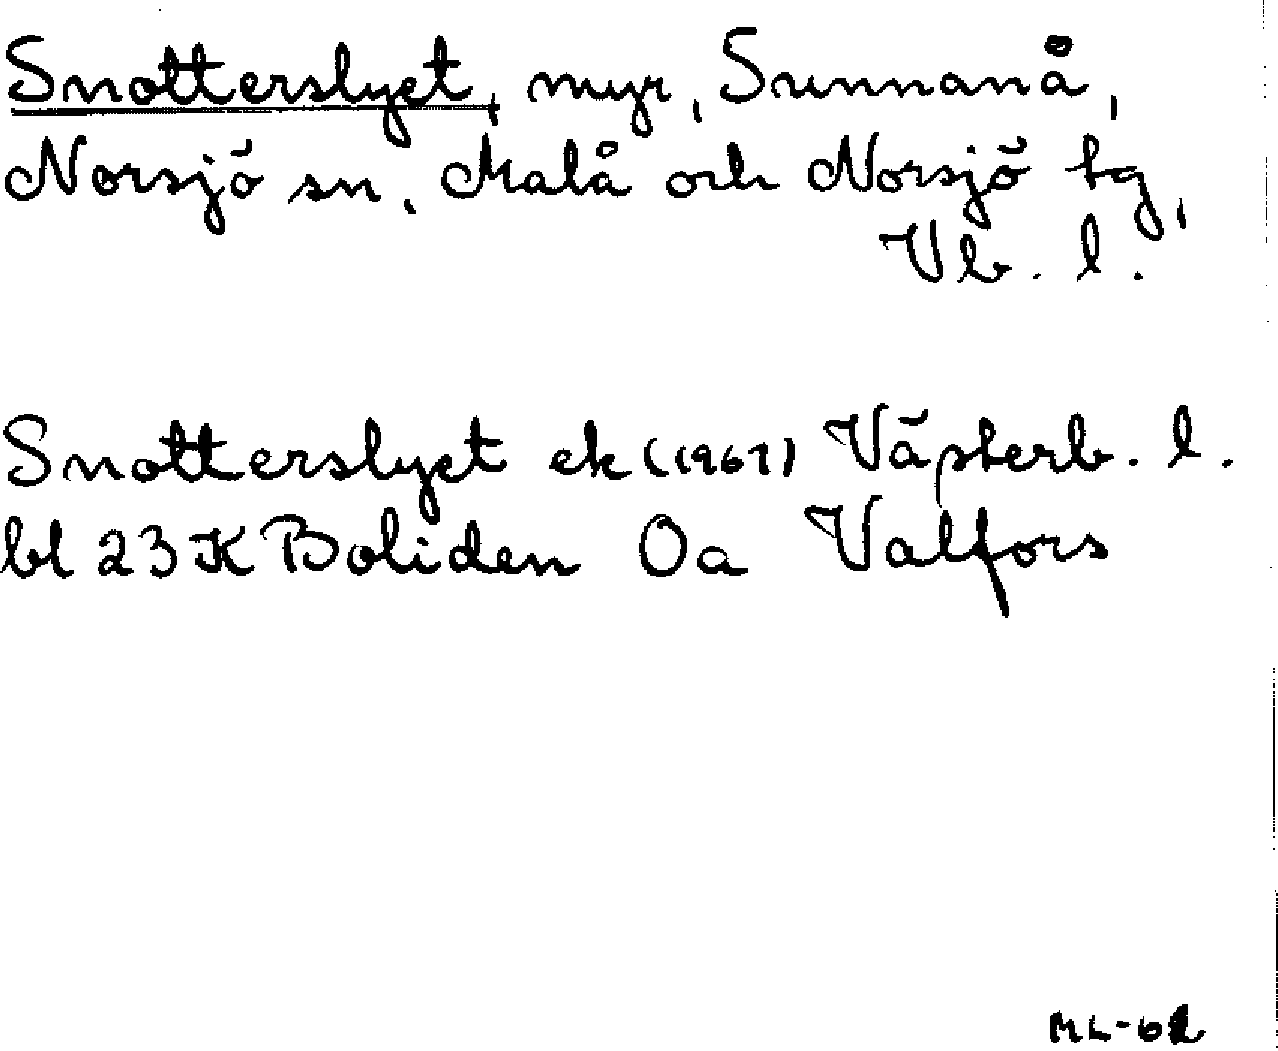 Snotterslyet, myr, Sunnanå,
Norsjö sn, Malå och Norsjö tg,
Vb. l.
Snotterslyet ek (1961) Västerb. l.
bl 23 K Boliden Oa Valfors